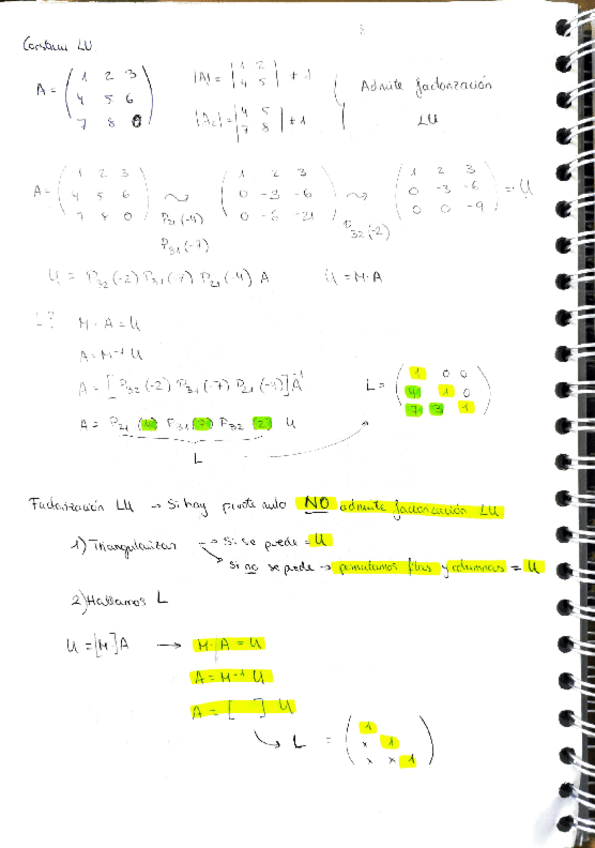 Construir LU
A = ( 1 2 3 / 4 5 6 / 7 8 0 ) |A₁| = | 1 2 / 4 5 | ≠ 1 Admite factorización LU
|A₂| = | 4 5 / 7 8 | ≠ 1
A = ( 1 2 3 / 4 5 6 / 7 8 0 ) ⇝ P₂₁(-4) P₃₁(-7) ( 1 2 3 / 0 -3 -6 / 0 -6 -21 ) ⇝ P₃₂(-2) ( 1 2 3 / 0 -3 -6 / 0 0 -9 ) = U
U = P₃₂(-2) P₃₁(-7) P₂₁(-4) A U = M·A
L? M·A = U
A = M⁻¹ U
A = [P₃₂(-2) P₃₁(-7) P₂₁(-4)]⁻¹ L = ( 1 0 0 / 4 1 0 / 7 3 1 )
A = P₂₁(4) P₃₁(7) P₃₂(2) U
L
Factorización LU → Si hay pivote nulo NO admite factorización LU
1) Triangularizar → Si se puede = U
Si no se puede → permutamos filas y columnas = U
2) Hallamos L
U = [M]A → M·A = U
A = M⁻¹ U
A = [ ] U
L = ( 1 / x 1 / x x 1 )